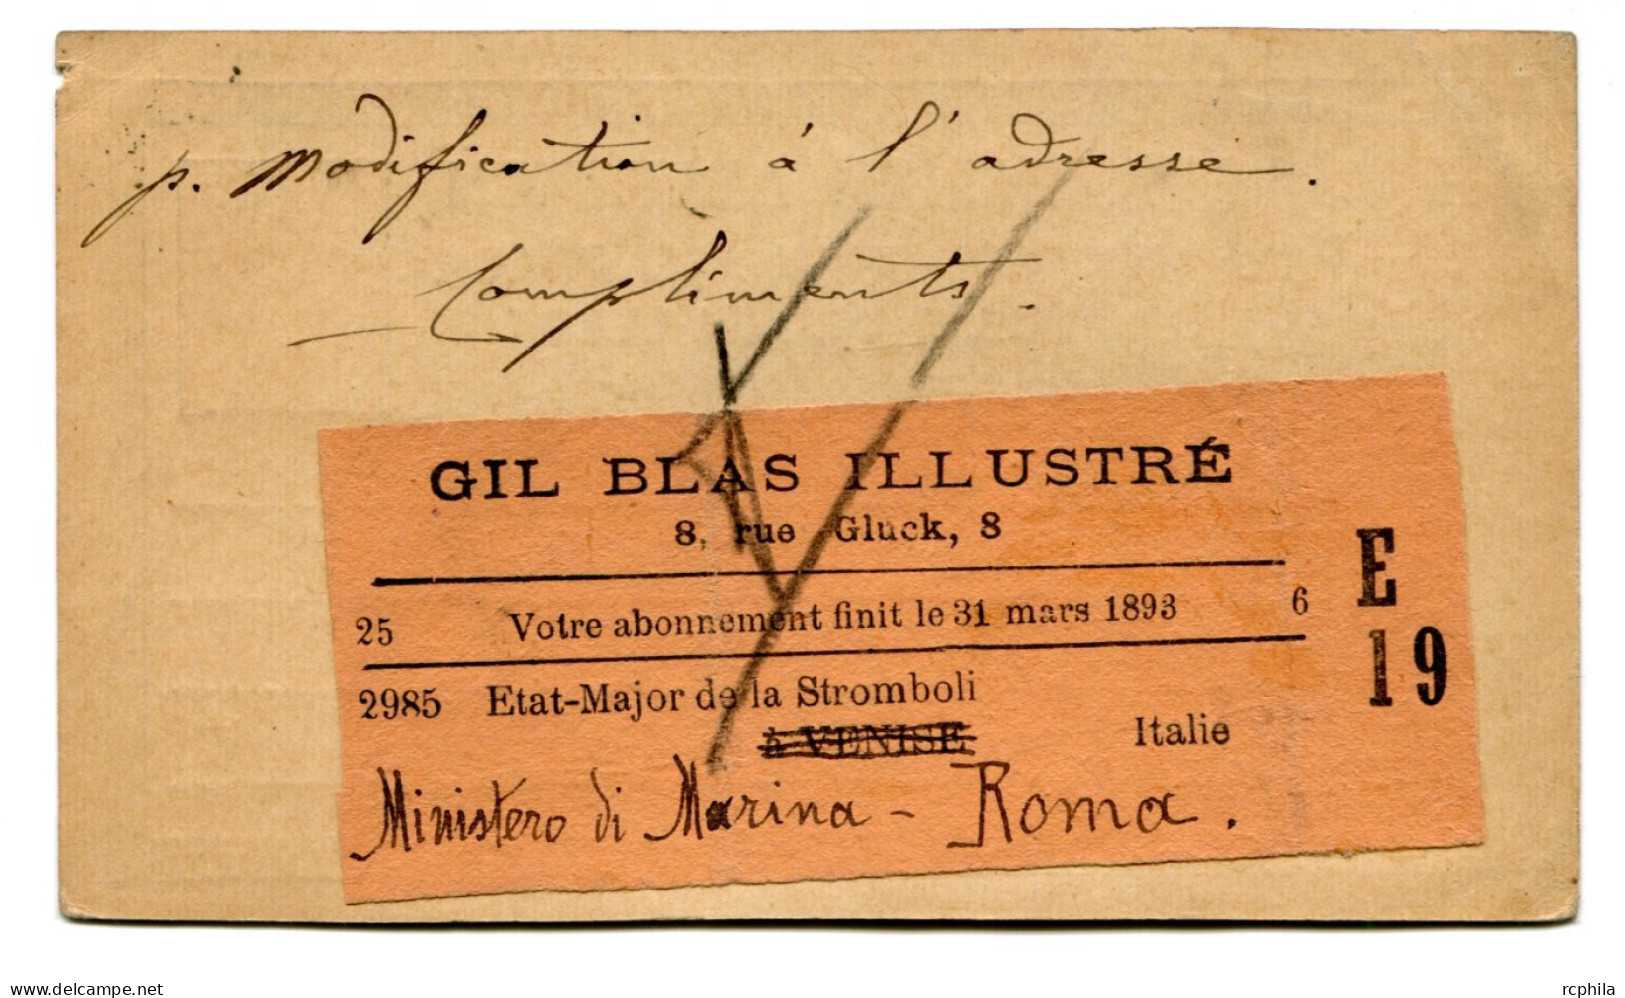 p. modification à l'adresse.
Compliments.
GIL BLAS ILLUSTRÉ
8, rue Gluck, 8
25 Votre abonnement finit le 31 mars 1893 6
E
19
2985 Etat-Major de la Stromboli
à VENISE Italie
Ministero di Marina - Roma.
rcphila